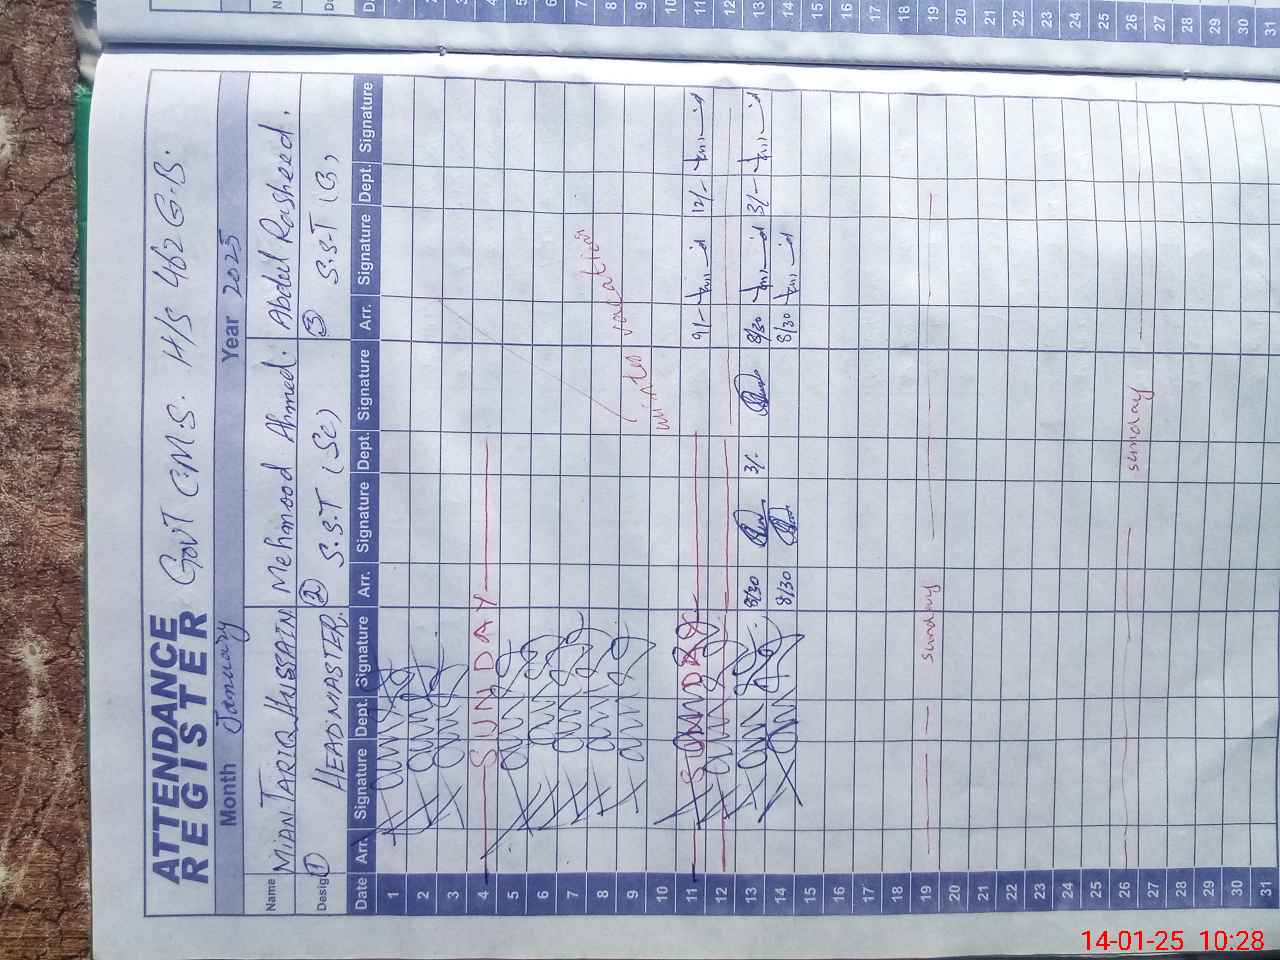 ATTENDANCE
REGISTER
GOVT C.M.S. H/S 462 G.B.
Month January Year 2025
Name MIAN TARIQ HUSSAIN Mehmood Ahmed. Abdul Rasheed.
Desig ① HEADMASTER. ② S.S.T (Sc) ③ S.S.T (G)
Date Arr. Signature Dept. Signature Arr. Signature Dept. Signature Arr. Signature Dept. Signature
1
2
3
4 SUNDAY
5
6
7
8 vacation
9
10 winter
11 SUNDAY 9/- 12/-
12
13 8/30 3/- 8/30 3/-
14 8/30 8/30
15
16
17
18
19 sunday
20
21
22
23
24
25
26 sunday
27
28
29
30
31
4
5
6
7
8
9
10
11
12
13
14
15
16
17
18
19
20
21
22
23
24
25
26
27
28
29
30
31
14-01-25 10:28